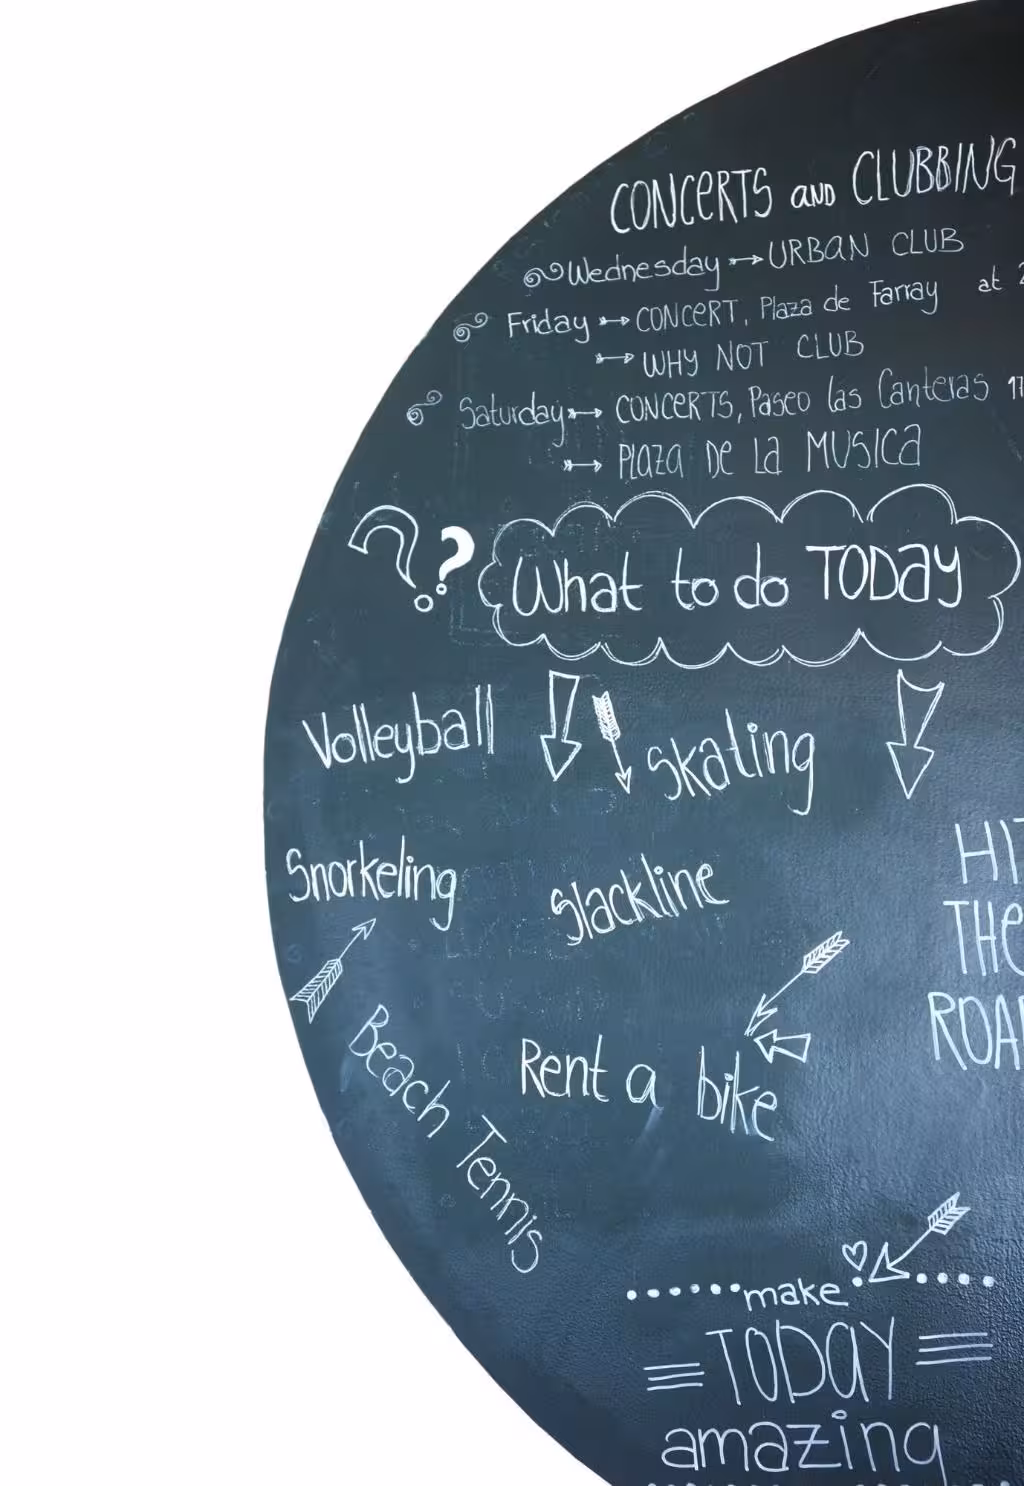 CONCERTS AND CLUBBING
Wednesday URBAN CLUB
Friday CONCERT, Plaza de Farray at
WHY NOT CLUB
Saturday CONCERTS, Paseo las Canteras
PLAZA DE LA MUSICA
??
What to do TODAY
Volleyball
Skating
Snorkeling
Slackline
Beach Tennis
Rent a bike
HIT
THE
ROAD
make
TODAY
amazing